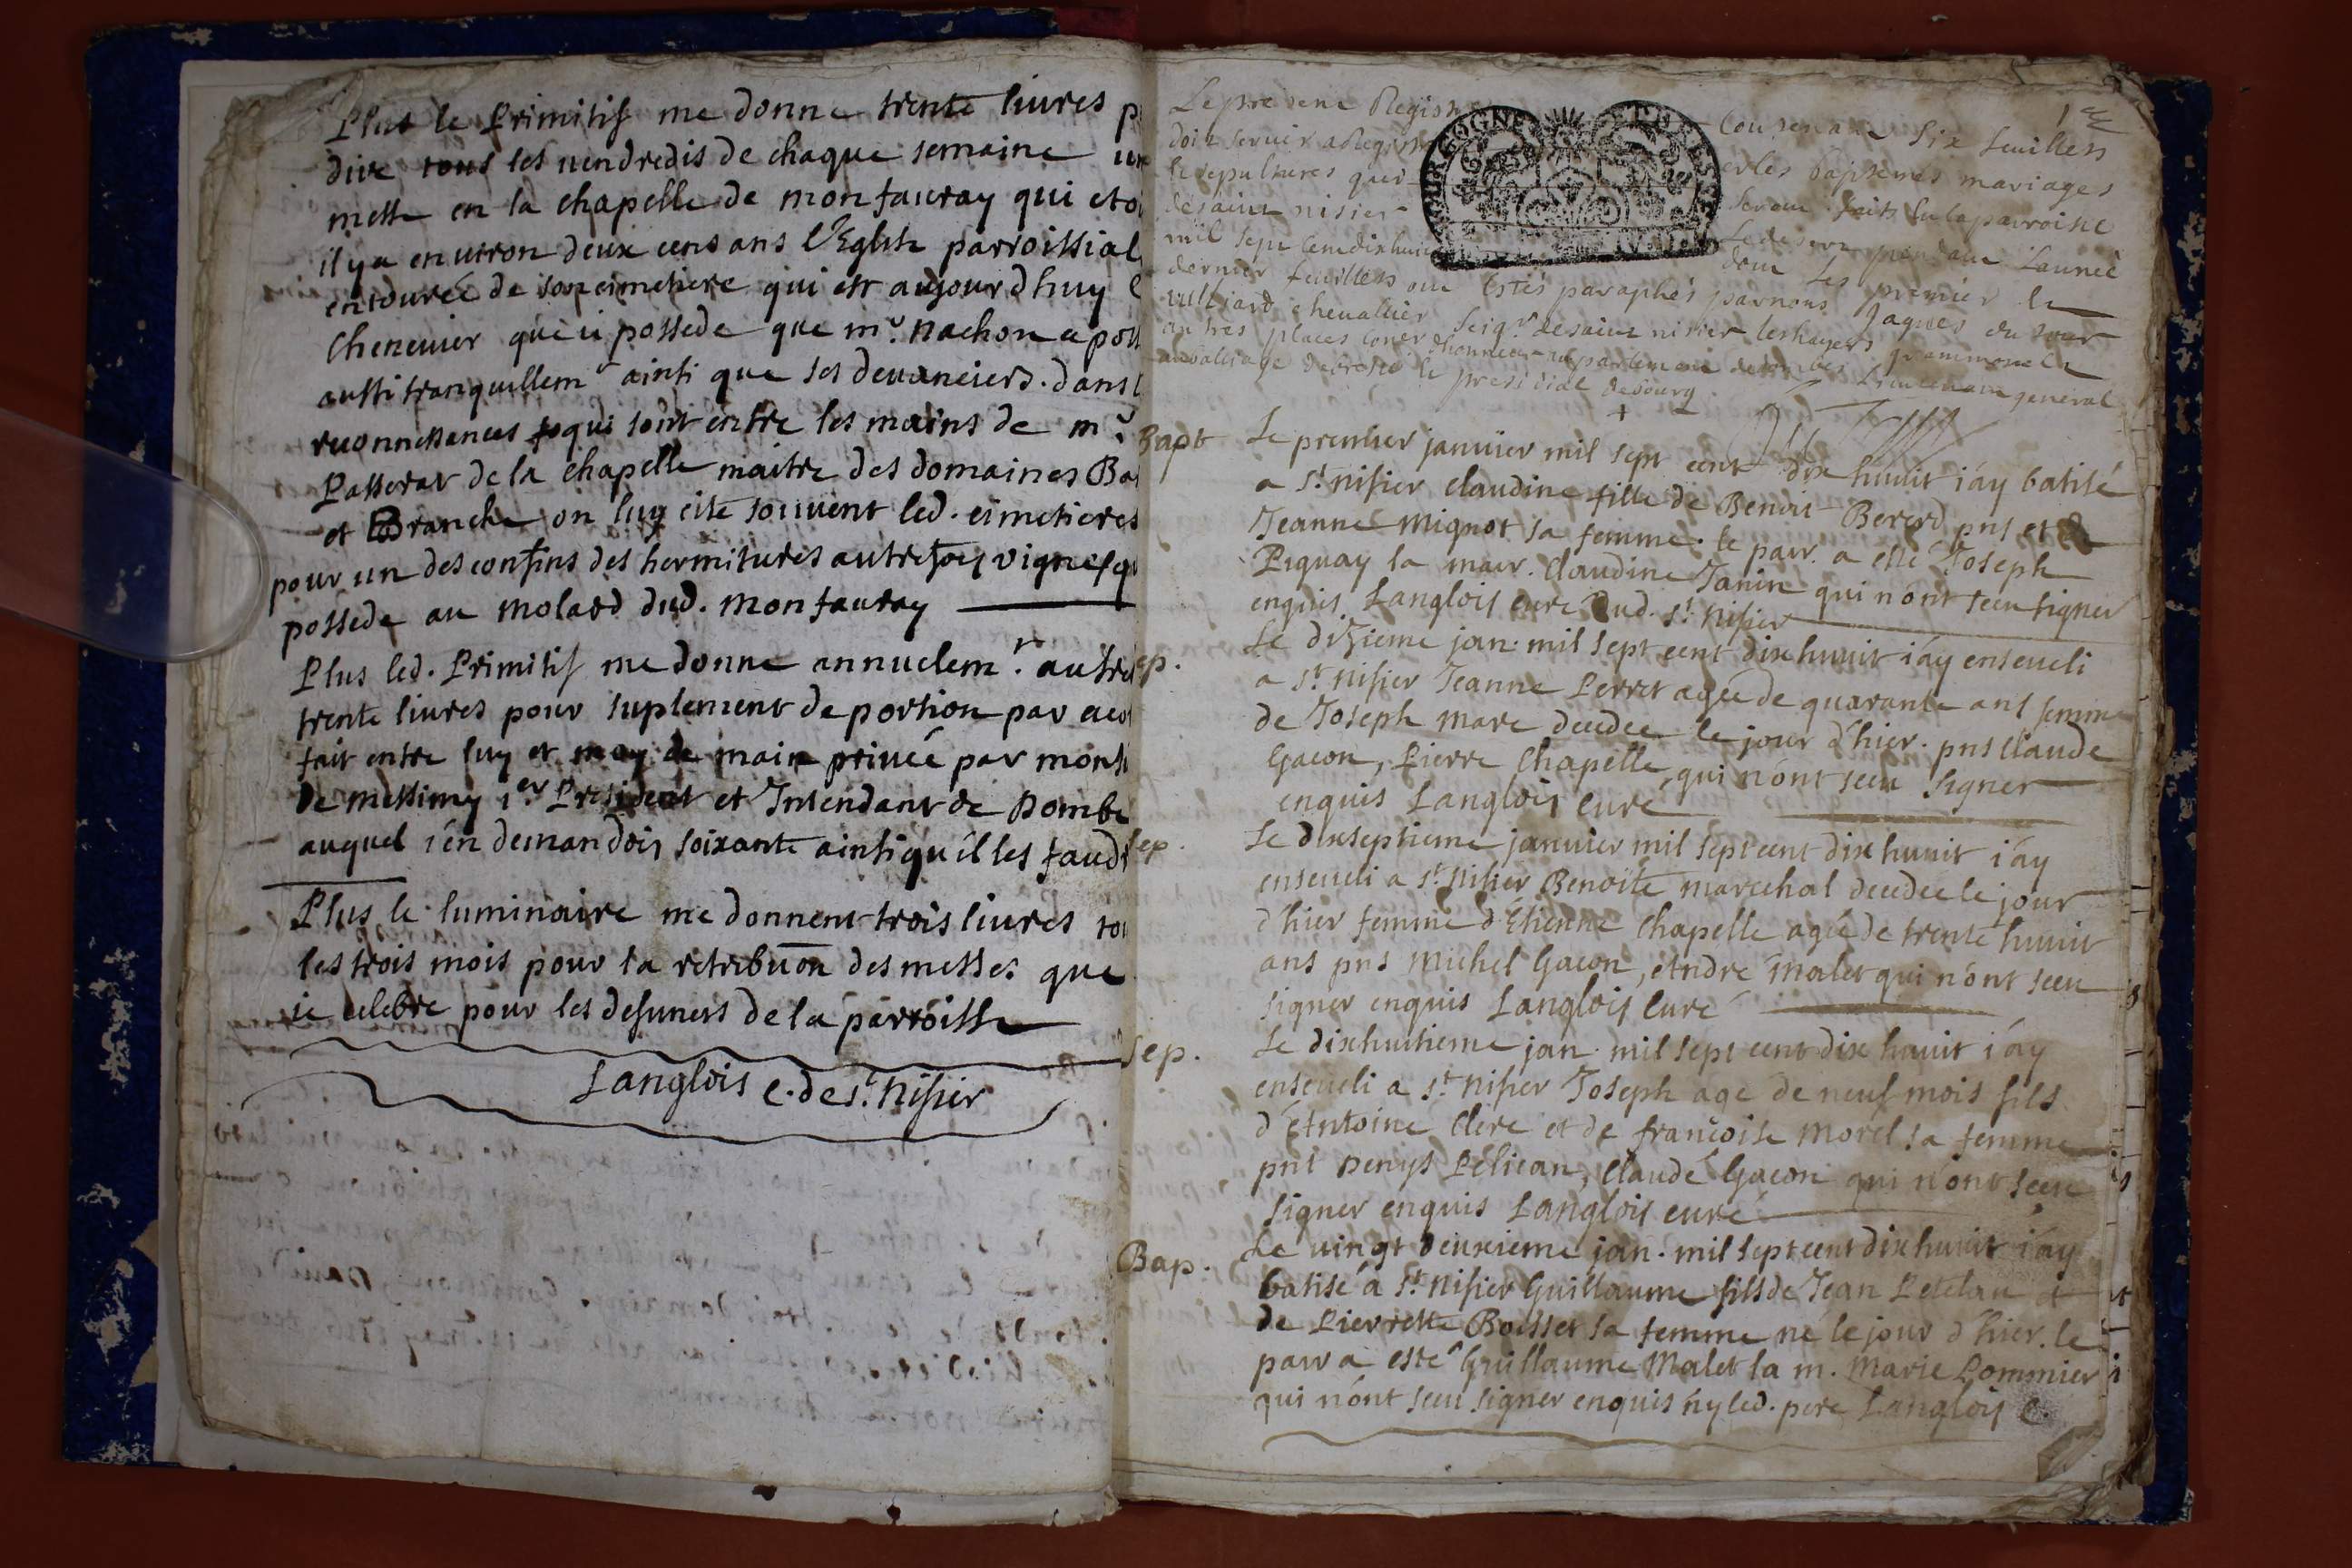 Plus le Primitif me donne trente livres p
dire tous les vendredis de chaque semaine un
messe en la chapelle de monfauray qui etoi
il y a environ deux cens ans l'Eglise parroissial
entourée de son cimetiere qui est aujourdhuy
Chenevier que possede que mr. nachon a poss
aussi tranquillemt ainsi que ses devanciers. dans l
reconnessances qui sont entre les mains de mr.
Passerat de la chapelle maitre des domaines Ba
et Branche on luy cite souvent led. cimetieres
pour un des confins des hermitures autrefois vignes q
possede au molard dud. monfauray
Plus led. Primitif me donne annuelemt. autre
trente livres pour suplement de portion par
fait entre luy et moy de main privée par monsi
de messimy 1er. President et Intendant de Dombe
auquel i'en demandois soixante ainsi qu'il les faud
Plus le luminaire me donnent trois livres to
les trois mois pour la retribuõn des messes que
ie celebre pour les defunets de la parroisse
Langlois c. de st. Nisier
1er
Le present Regist contenant six feuillets
doit servir a Regist et les baptemes mariages
le sepultures qui seront faits su la parroisse
de saint nisier pendant l'année
mil sept cent dixhuit dont les premier et
dernier feuillets ont estés paraphés par nous Jaques du
chevallier seigr. de saint nisier
autres places coner dhonneur au parlement de dombes Lieutenant general
au balliage de bresse le presidial de bourg
Bapt Le premier janvier mil sept cent dix huit i'ay batisé
a st. nisier claudine fille de Benoit Berard pnt et de
Jeanne Mignot sa femme. le parr. a esté Joseph
Piquay la marr. Claudine Janin qui n'ont sceu signer
enquis Langlois curé dud. st. Nisier
Sep. Le dizieme jan. mil sept cent dix huit i'ay enseveli
a st. Nisier Jeanne Perret agée de quarante ans femme
de Joseph Mare decedee le jour d'hier. pns Claude
Gacon, Pierre Chapelle qui n'ont sceu signer
enquis Langlois curé
Sep. Le dixseptieme janvier mil sept cent dix huit i'ay
enseveli a st. Nisier Benoîte marechal decedee le jour
d'hier femme d'Etienne Chapelle agée de trente huit
ans pns Michel Gacon, Andre Malet qui n'ont sceu
signer enquis Langlois Curé
Sep. Le dixhuitieme jan. mil sept cent dix huit i'ay
enseveli a st. Nisier Joseph age de neuf mois fils
d'Antoine Clerc et de françoise Morel sa femme
pnt Denys Pelican, Claude Gacon qui n'ont sceu
signer enquis Langlois curé
Bap. Le vingt deuxieme jan. mil sept cent dix huit i'ay
batisé a st. Nisier Guillaume fils de Jean Petelan et
de Pierrette Boisset sa femme né le jour d'hier. le
parr a esté Guillaume Malet la m. Marie Pommier
qui n'ont sceu signer enquis ny led. pere Langlois c.